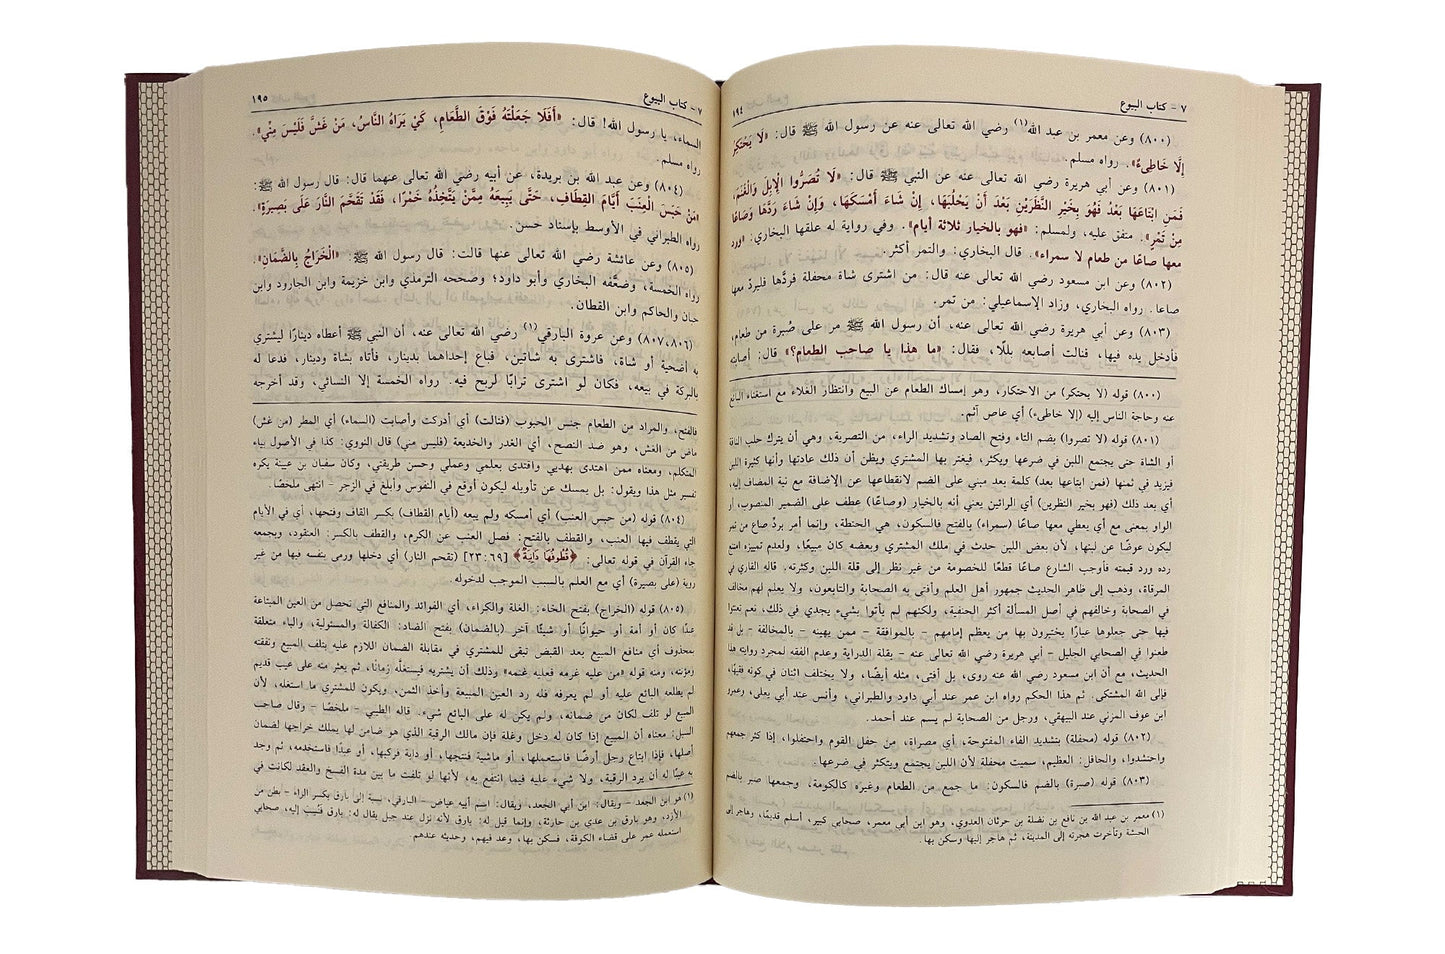 ٧ - كتاب البيوع ١٩٤
(٨٠٠) وعن معمر بن عبد الله(١) رضي الله تعالى عنه عن رسول الله ﷺ قال: «لَا يَحْتَكِرُ
إِلَّا خَاطِىءٌ». رواه مسلم.
(٨٠١) وعن أبي هريرة رضي الله تعالى عنه عن النبي ﷺ قال: «لَا تُصَرُّوا الْإِبِلَ وَالْغَنَمَ،
فَمَنِ ابْتَاعَهَا بَعْدُ فَهُوَ بِخَيْرِ النَّظَرَيْنِ بَعْدَ أَنْ يَحْلُبَهَا، إِنْ شَاءَ أَمْسَكَهَا، وَإِنْ شَاءَ رَدَّهَا وَصَاعًا
مِنْ تَمْرٍ». متفق عليه، ولمسلم: «فهو بالخيار ثلاثة أيام». وفي رواية له علقها البخاري: «ورد
معها صاعًا من طعام لا سمراء». قال البخاري: والتمر أكثر.
(٨٠٢) وعن ابن مسعود رضي الله تعالى عنه قال: من اشترى شاة محفلة فردَّها فليردّ معها
صاعا. رواه البخاري، وزاد الإسماعيلي: من تمر.
(٨٠٣) وعن أبي هريرة رضي الله تعالى عنه، أن رسول الله ﷺ مر على صُبرة من طعام،
فأدخل يده فيها، فنالت أصابعه بللًا، فقال: «ما هذا يا صاحب الطعام؟» قال: أصابته
(٨٠٠) قوله (لا يحتكر) من الاحتكار، وهو إمساك الطعام عن البيع وانتظار الغلاء مع استغناء البائع
عنه وحاجة الناس إليه (إلا خاطىء) أي عاص آثم.
(٨٠١) قوله (لا تصروا) بضم التاء وفتح الصاد وتشديد الراء، من التصرية، وهي أن يترك حلب الناقة
أو الشاة حتى يجتمع اللبن في ضرعها ويكثر، فيغتر بها المشتري ويظن أن ذلك عادتها وأنها كثيرة اللبن
فيزيد في ثمنها (فمن ابتاعها بعد) كلمة بعد مبني على الضم لانقطاعها عن الإضافة مع نية المضاف إليه،
أي بعد ذلك (فهو بخير النظرين) أي الرائين يعني أنه بالخيار (وصاعًا) عطف على الضمير المنصوب، أو
الواو بمعنى مع أي يعطي معها صاعًا (سمراء) بالفتح فالسكون، هي الحنطة، وإنما أمر بردّ صاع من تمر
ليكون عوضًا عن لبنها، لأن بعض اللبن حدث في ملك المشتري وبعضه كان مبيعًا، ولعدم تمييزه امتنع
رده ورد قيمته فأوجب الشارع صاعًا قطعًا للخصومة من غير نظر إلى قلة اللبن وكثرته. قاله القاري في
المرقاة، وذهب إلى ظاهر الحديث جمهور أهل العلم وأفتى به الصحابة والتابعون، ولا يعلم لهم مخالف
في الصحابة وخالفهم في أصل المسألة أكثر الحنفية، ولكنهم لم يأتوا بشيء يجدي في ذلك، نعم نعتذر
فيها حتى جعلوها عيارًا يختبرون بها من يعظم إمامهم - بالموافقة - ممن يهينه - بالمخالفة - بل قد
طعنوا في الصحابي الجليل - أبي هريرة رضي الله تعالى عنه - بقلة الدراية وعدم الفقه لمجرد روايته هذا
الحديث، مع أن ابن مسعود رضي الله عنه روى، بل أفتى، مثله أيضًا، ولا يختلف اثنان في كونه فقيهًا،
فإلى الله المشتكى. ثم هذا الحكم رواه ابن عمر عند أبي داود والطبراني، وأنس عند أبي يعلى، وعمرو
ابن عوف المزني عند البيهقي، ورجل من الصحابة لم يسم عند أحمد.
(٨٠٢) قوله (محفلة) بتشديد الفاء المفتوحة، أي مصراة، من حفل القوم واحتفلوا، إذا كثر جمعهم
واحتشدوا، والحافل: العظيم، سميت محفلة لأن اللبن يجتمع ويتكثر في ضرعها.
(٨٠٣) قوله (صبرة) بالضم فالسكون: ما جمع من الطعام وغيره كالكومة، وجمعها صبر بالضم
(١) معمر بن عبد الله بن نافع بن نضلة بن حرثان العدوي، وهو ابن أبي معمر، صحابي كبير، أسلم قديمًا، وهاجر إلى
الحبشة وتأخرت هجرته إلى المدينة، ثم هاجر إليها وسكن بها.
٧ - كتاب البيوع ١٩٥
السماء، يا رسول الله! قال: «أَفَلَا جَعَلْتَهُ فَوْقَ الطَّعَامِ، كَيْ يَرَاهُ النَّاسُ، مَنْ غَشَّ فَلَيْسَ مِنِّي».
رواه مسلم.
(٨٠٤) وعن عبد الله بن بريدة، عن أبيه رضي الله تعالى عنهما قال: قال رسول الله ﷺ:
«مَنْ حَبَسَ الْعِنَبَ أَيَّامَ الْقِطَافِ، حَتَّى يَبِيعَهُ مِمَّنْ يَتَّخِذُهُ خَمْرًا، فَقَدْ تَقَحَّمَ النَّارَ عَلَى بَصِيرَةٍ».
رواه الطبراني في الأوسط بإسناد حسن.
(٨٠٥) وعن عائشة رضي الله تعالى عنها قالت: قال رسول الله ﷺ: «الْخَرَاجُ بِالضَّمَانِ».
رواه الخمسة، وضعّفه البخاري وأبو داود؛ وصححه الترمذي وابن خزيمة وابن الجارود وابن
حبان والحاكم وابن القطان.
(٨٠٦، ٨٠٧) وعن عروة البارقي (١) رضي الله تعالى عنه، أن النبي ﷺ أعطاه دينارًا ليشتري
به أضحية أو شاة، فاشترى به شاتين، فباع إحداهما بدينار، فأتاه بشاة ودينار، فدعا له
بالبركة في بيعه، فكان لو اشترى ترابًا لربح فيه. رواه الخمسة إلا النسائي، وقد أخرجه
فالفتح، والمراد من الطعام جنس الحبوب (فنالت) أي أدركت وأصابت (السماء) أي المطر (من غش)
ماض من الغش، وهو ضد النصح، أي الغدر والخديعة (فليس مني) قال النووي: كذا في الأصول بياء
المتكلم، ومعناه ممن اهتدى بهديي واقتدى بعلمي وعملي وحسن طريقتي، وكان سفيان بن عيينة يكره
تفسير مثل هذا ويقول: بل يمسك عن تأويله ليكون أوقع في النفوس وأبلغ في الزجر - انتهى ملخصًا.
(٨٠٤) قوله (من حبس العنب) أي أمسكه ولم يبعه (أيام القطاف) بكسر القاف وفتحها، أي في الأيام
التي يقطف فيها العنب، والقطف بالفتح: فصل العنب عن الكرم، والقطف بالكسر: العنقود، وبجمعه
جاء القرآن في قوله تعالى: ﴿قُطُوفُهَا دَانِيَةٌ﴾ [٦٩:٢٣] (تقحم النار) أي دخلها ورمى بنفسه فيها من غير
روية (على بصيرة) أي مع العلم بالسبب الموجب لدخوله.
(٨٠٥) قوله (الخراج) بفتح الخاء: الغلة والكراء، أي الفوائد والمنافع التي تحصل من العين المبتاعة
عبدًا كان أو أمة أو حيوانًا أو شيئًا آخر (بالضمان) بفتح الضاد: الكفالة والمسئولية، والباء متعلقة
بمحذوف أي منافع المبيع بعد القبض تبقى للمشتري في مقابلة الضمان اللازم عليه بتلف المبيع ونفقته
ومؤنته، ومنه قوله «من عليه غرمه فعليه غنمه» وذلك أن يشتريه فيستغلّه زمانًا، ثم يعثر منه على عيب قديم
لم يطلعه البائع عليه أو لم يعرفه فله رد العين المبيعة وأخذ الثمن، ويكون للمشتري ما استغله، لأن
المبيع لو تلف لكان من ضمانه، ولم يكن له على البائع شيء. قاله الطيبي - ملخصًا - وقال صاحب
السبل: معناه أن المبيع إذا كان له دخل وغلة فإن مالك الرقبة الذي هو ضامن لها يملك خراجها لضمان
أصلها، فإذا ابتاع رجل أرضًا فاستعملها، أو ماشية فنتجها، أو دابة فركبها، أو عبدًا فاستخدمه، ثم وجد
به عيبًا له أن يرد الرقبة، ولا شيء عليه فيما انتفع به، لأنها لو تلفت ما بين مدة الفسخ والعقد لكانت في
(١) هو ابن الجعد - ويقال: ابن أبي الجعد، ويقال: اسم أبيه عياض - البارقي، نسبة إلى بارق بكسر الراء - بطن من
الأزد، وهو بارق بن عدي بن حارثة، وإنما قيل له: بارق لأنه نزل عند جبل يقال له: بارق فنُسِبَ إليه، صحابي
استعمله عمر على قضاء الكوفة، فسكن بها، وعد فيهم، وحديثه عندهم.